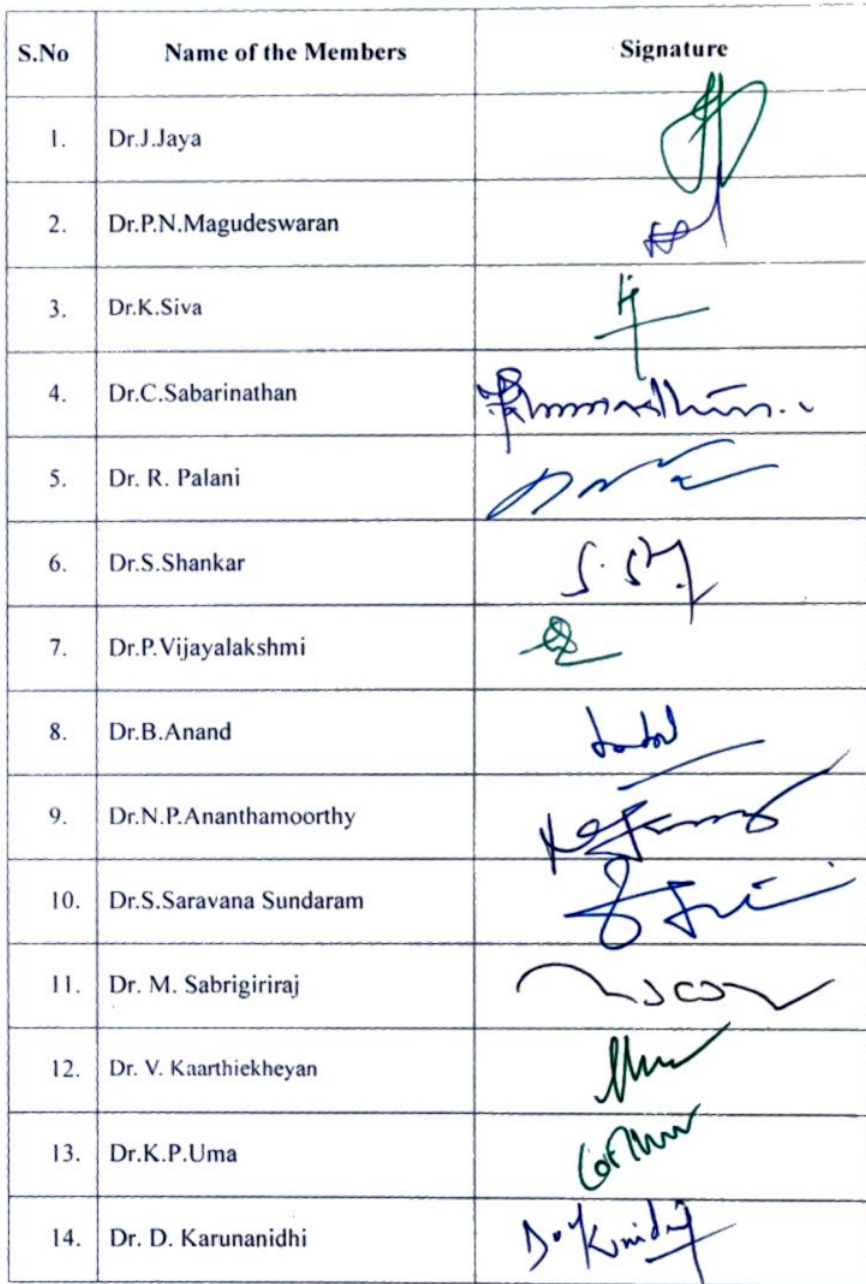 S.No Name of the Members Signature
1. Dr.J.Jaya
2. Dr.P.N.Magudeswaran
3. Dr.K.Siva
4. Dr.C.Sabarinathan
5. Dr. R. Palani
6. Dr.S.Shankar
7. Dr.P.Vijayalakshmi
8. Dr.B.Anand
9. Dr.N.P.Ananthamoorthy
10. Dr.S.Saravana Sundaram
11. Dr. M. Sabrigiriraj
12. Dr. V. Kaarthiekheyan
13. Dr.K.P.Uma
14. Dr. D. Karunanidhi